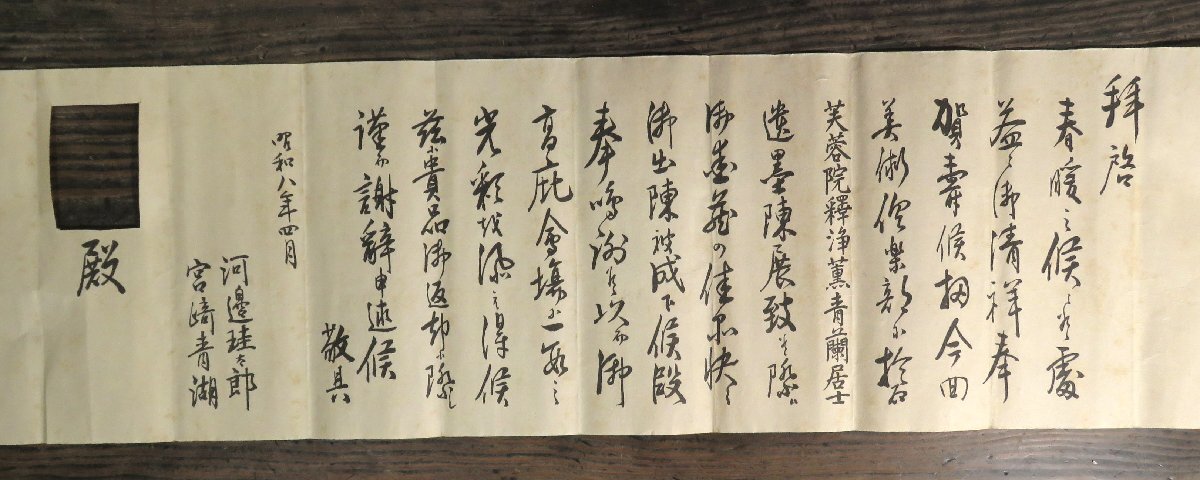 拝啓
春暖之候に候處
益々御清祥奉
賀壽候扨今回
美術倶楽部に於て
芙蓉院釋浄薫青蘭居士
遺墨陳展致し候際は
御愛藏の佳品快く
御出陳被成下候段
奉鳴謝候以而御
高庇會場に一段之
光彩を添へ得候
茲に貴品御返却に際し
謹而謝辭申述候
敬具
昭和八年四月
河邊珪太郎
宮崎青湖
殿